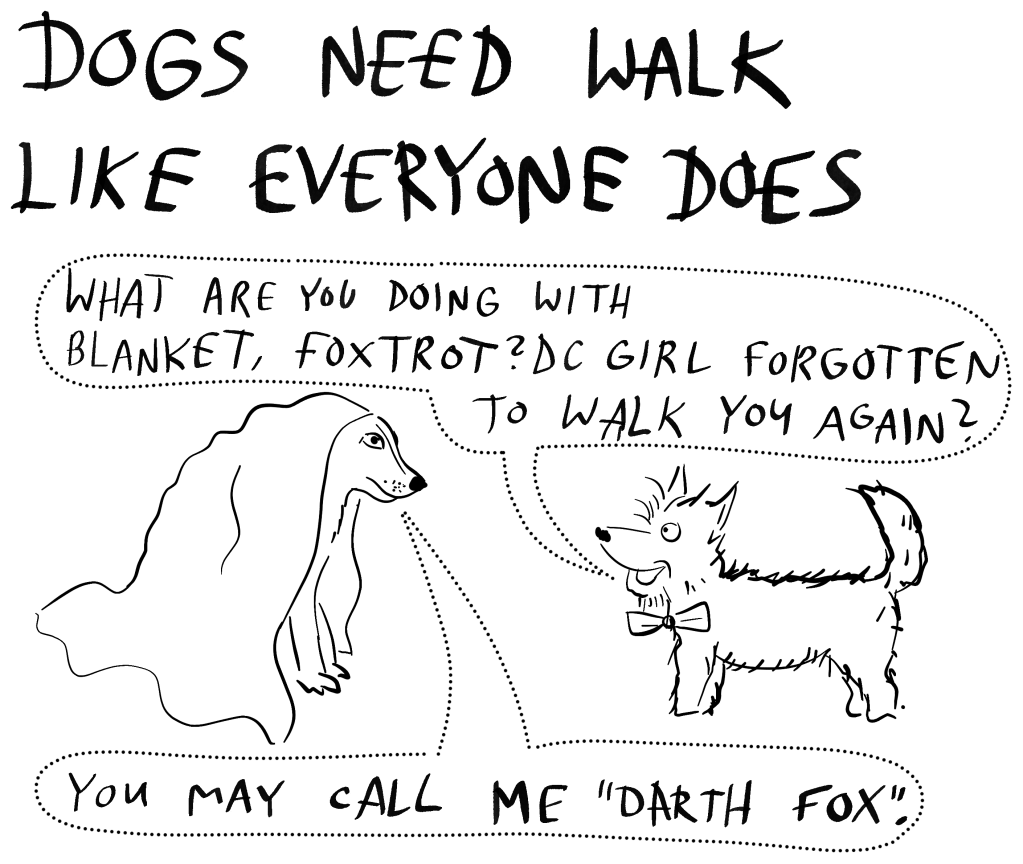 DOGS NEED WALK
LIKE EVERYONE DOES
WHAT ARE YOU DOING WITH
BLANKET, FOXTROT? DC GIRL FORGOTTEN
TO WALK YOU AGAIN?
YOU MAY CALL ME "DARTH FOX".